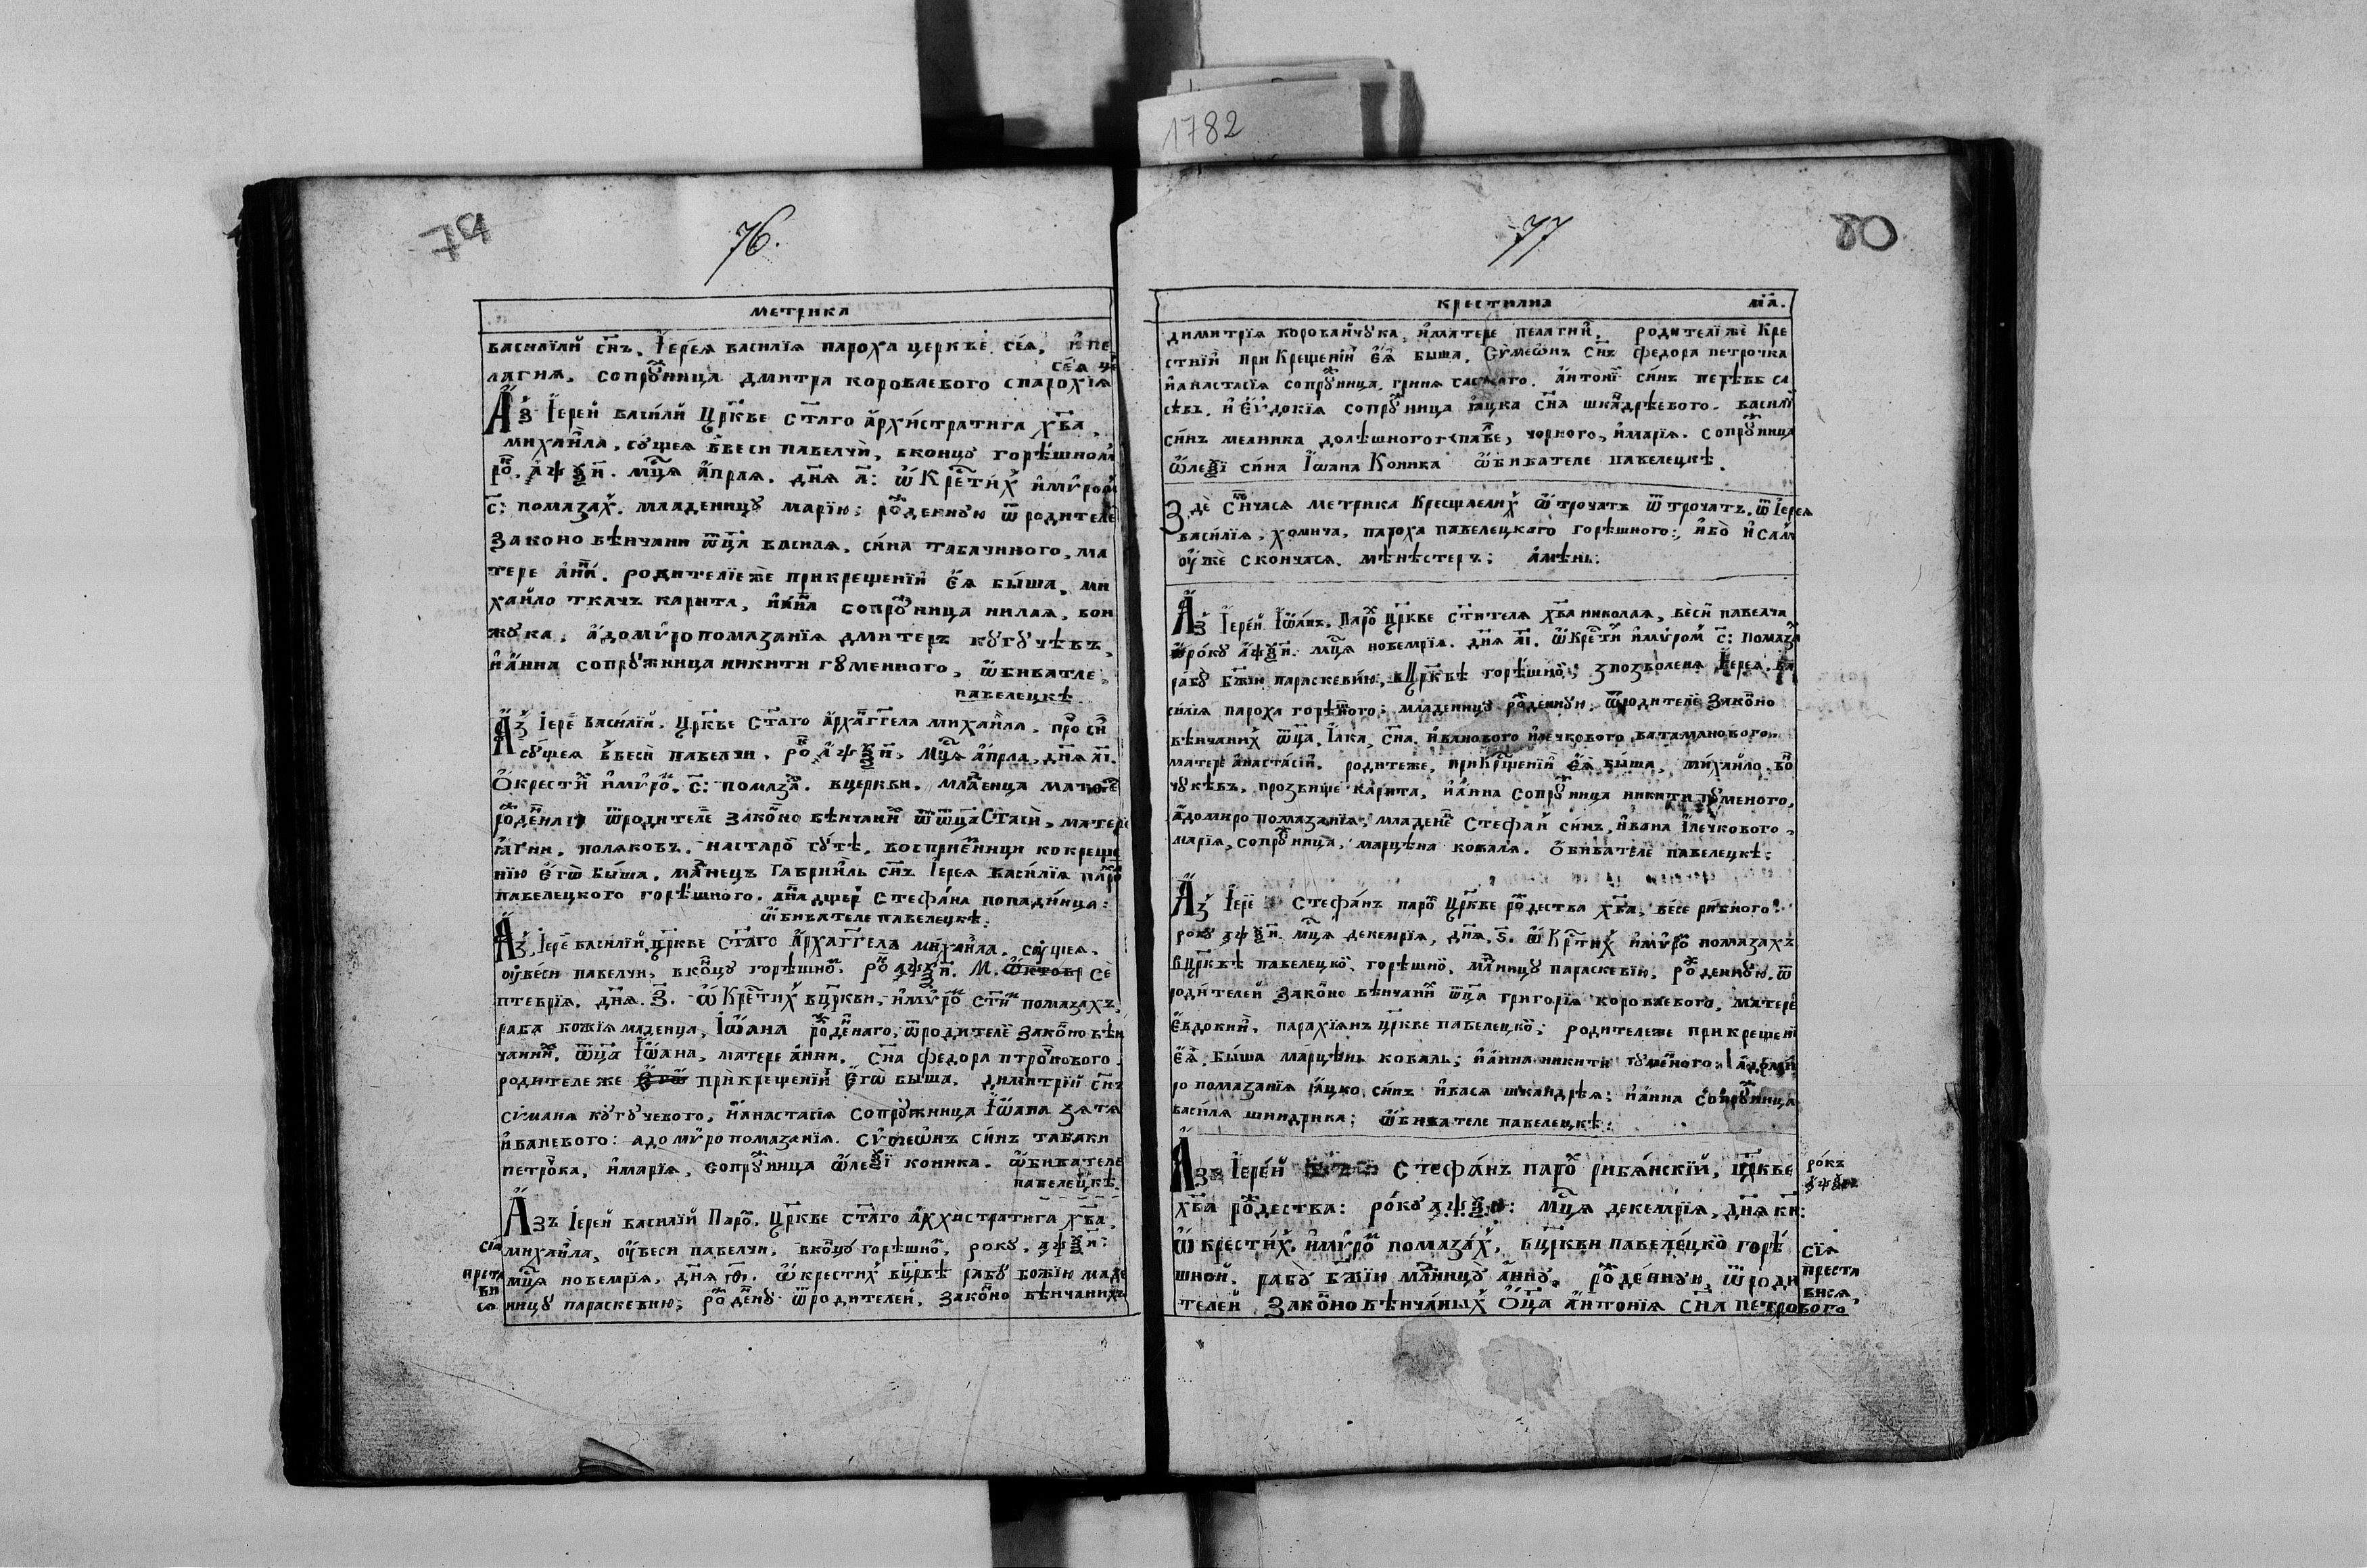 1782
79
76.
метрика
василїяй сн҃ъ. Їерея василїя пароха церкве сея, и пе
сея це
лагия, сопрꙋжница дмитра короваевого спарохїя
Аз Їерей василй Црк҃ве ст҃аго архистратига хв҃а,
михаила, сꙋщея ввеси павелчи, вконцꙋ горѣшном
ро҃к. аѱѯи. мц҃я апрля. дн҃я а҃: ѿ Крестих имѵром
с: помазах. младеницꙋ марїю: рожденнꙋю ѿ родителе
законо вѣнчани ѿца василя, сина табачиного, ма
тере анни. родителїеже прикрещенїи ея быша, ми
хайло ткачъ карита, и анна сопрꙋжница нилая, вон
жꙋка, адомѵропомазанїя дмитеръ кꙋгꙋчѣвъ,
и анна сопрꙋжница никити гꙋменного, ѡбивателе,
павелецкѣ.
Аз їерей василїй, Црк҃ве ст҃аго архаггела михаила,
сꙋщея ввеси павелчи, ро҃к аѱѯи, мц҃я апрла, дн҃я аі.
Ѡкрести имѵро, с: помаза. вцеркви. младенца
рожденна ѿродителе законо вѣнчани ѿ ѿца Стаси, матере
ягни, поляковъ. настаро гꙋтѣ. восприемници ко креще
нїю его быша. младенецъ Гаврийлъ сн҃ъ Їерея василїя паро
павелецкого горѣшного. анна дщер Стефана попадиница:
ѡбивателе павелецкѣ:
Аз, Їерей василїй, црк҃ве ст҃аго архаггела михаила, сꙋщея.
ѹвеси павелчи, вконцꙋ горѣшно, ро҃к аѱѯи. М. ѡктовр се
птеврїя. дн҃я. з. ѡ Крестих вцркви, имѵро сти помазахъ
раба божїя маденца, Їѡана рожденаго, ѿродителе законо вѣн
чаний. ѿца Їѡана, матере анни. сн҃а федора птроникового
родитележе его прикрещенїи его быша. димитрїй сн҃ъ
симаня кꙋгꙋчевого, и анастасїя сопрꙋжница Їѡана зятя
иваневого: адомѵропомазанїя. Сѵмеѡнъ синъ табаки
петрꙋка, и марїя, сопрꙋжница ѡлеѯї коника. ѡбивателе
павелецкѣ.
Азъ Їерей василїй Паро, црк҃ве ст҃аго архистратига хв҃а,
михаила, ѹвеси павелчи, вконцꙋ горѣшно, рокꙋ. аѱѯи:
мц҃я новемрїя, дн҃я ѳі. ѡкрестих вцрквѣ рабꙋ божїю маде
ницꙋ параскевию; рожденꙋ ѿродителей, законно вѣнчанихъ
сїя
преста
ви
ся
77
80
крестилна
ма.
димитрїя короваичꙋка, и матере пелагии, родителїже Кре
стнїи при Крещенїи ея быша, Сѵмеѡнъ сн҃ъ федора петрочка
и анастасїя сопрꙋжница, гриня. антонї синъ
сѣвъ. и Еѵдокїя сопрꙋжница яцка сн҃а шкандрѣевого. василї
синъ мелника долѣшного, чорного, и марїя. сопрꙋжница
ѡлеѯї сина Їѡана Коника ѡбивателе павелецкѣ.
Зде сончася метрика Крещаемих ѿтрочатъ ѿтрочатъ. ѿ Їерея
василїя, хомича, пароха павелецкаго горѣшного:, ибо и сам
ѹже скончася. мѣнѣстеръ: амѣнь:
Аз Їерей Їѡанъ, Паро црк҃ве ст҃ителя хв҃а николая, веси павелча
рокꙋ аѱѯи. мц҃я новемрїя. дн҃я аі. ѡКрести имѵром с: помаза
рабꙋ бж҃їю параскевию, вЦрквѣ горѣшно; зпозволеня Їерея ва
силїя пароха горѣшного: младеницꙋ рожденнꙋю, ѿродителе законо
вѣнчаних ѿца, Їлка, сн҃а, иванового илечкового ватаманового.
матере анастасїи. родитеже, прикрщенїи ея быша, михайло, вон
чꙋкѣвъ, прозвище карита, и анна сопрꙋжница никити гꙋменого,
адомиропомазанїя, младене Стефан синъ, ивана їлечкового,
марїя, сопрꙋжница, марцѣна коваля. ѡбивателе павелецкѣ:
Аз Їере Стефанъ паро црк҃ве рождества хв҃а, весе рибного:
рокꙋ аѱѯи. мц҃я декемрїя, дн҃я, ѕ. ѡ Кртих имѵро помазахъ
вЦрквѣ павелецко, горѣшно, младеницꙋ параскевїю, рожденнꙋю. ѿ
родителей законо вѣнчани ѿца григорїя короваевого, матере
Евдокии, парахїянъ црк҃ве павелецко; родитележе прикрещенї
ея, быша марцѣнь коваль; и анна никити гꙋменого: адомѵ
ропомазанїя яцко, синъ ивася шкандрѣя; и анна сопрꙋжница
василя шиндрика; ѡбивателе павелецкѣ:
Азъ Їерей Стефанъ паро рибянскїй, црк҃ве
хв҃а рождества: рокꙋ аѱѯи: мц҃я декемрїя, дн҃я ки:
ѡкрестих, имѵро помазах, вцркви павелецко горѣ
шной. рабꙋ бж҃їю младеницꙋ аннꙋ, рожденнꙋю, ѿроди
телей законно вѣнчаных Ѿца антонїя сн҃а петрового
рокъ
аѱѯи
сїя
преста
вися,